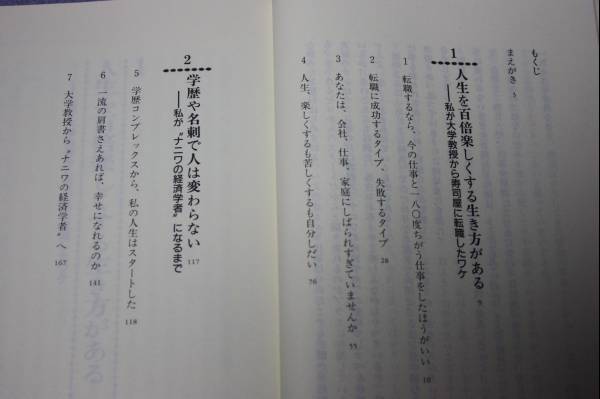 もくじ
まえがき 3
1 人生を百倍楽しくする生き方がある 9
──私が大学教授から寿司屋に転職したワケ
1 転職するなら、今の仕事と一八〇度ちがう仕事をしたほうがいい 10
2 転職に成功するタイプ、失敗するタイプ 28
3 あなたは、会社、仕事、家庭にしばられすぎていませんか 55
4 人生、楽しくするも苦しくするも自分しだい 76
2 学歴や名刺で人は変わらない 117
──私が〝ナニワの経済学者〟になるまで
5 学歴コンプレックスから、私の人生はスタートした 118
6 一流の肩書さえあれば、幸せになれるのか 141
7 大学教授から〝ナニワの経済学者〟へ 167